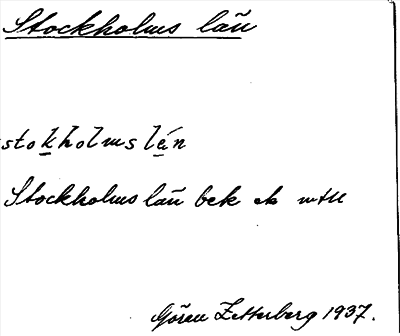 Stockholms län
stokholmslén
Stockholms län bek
Göran Zetterberg 1937.